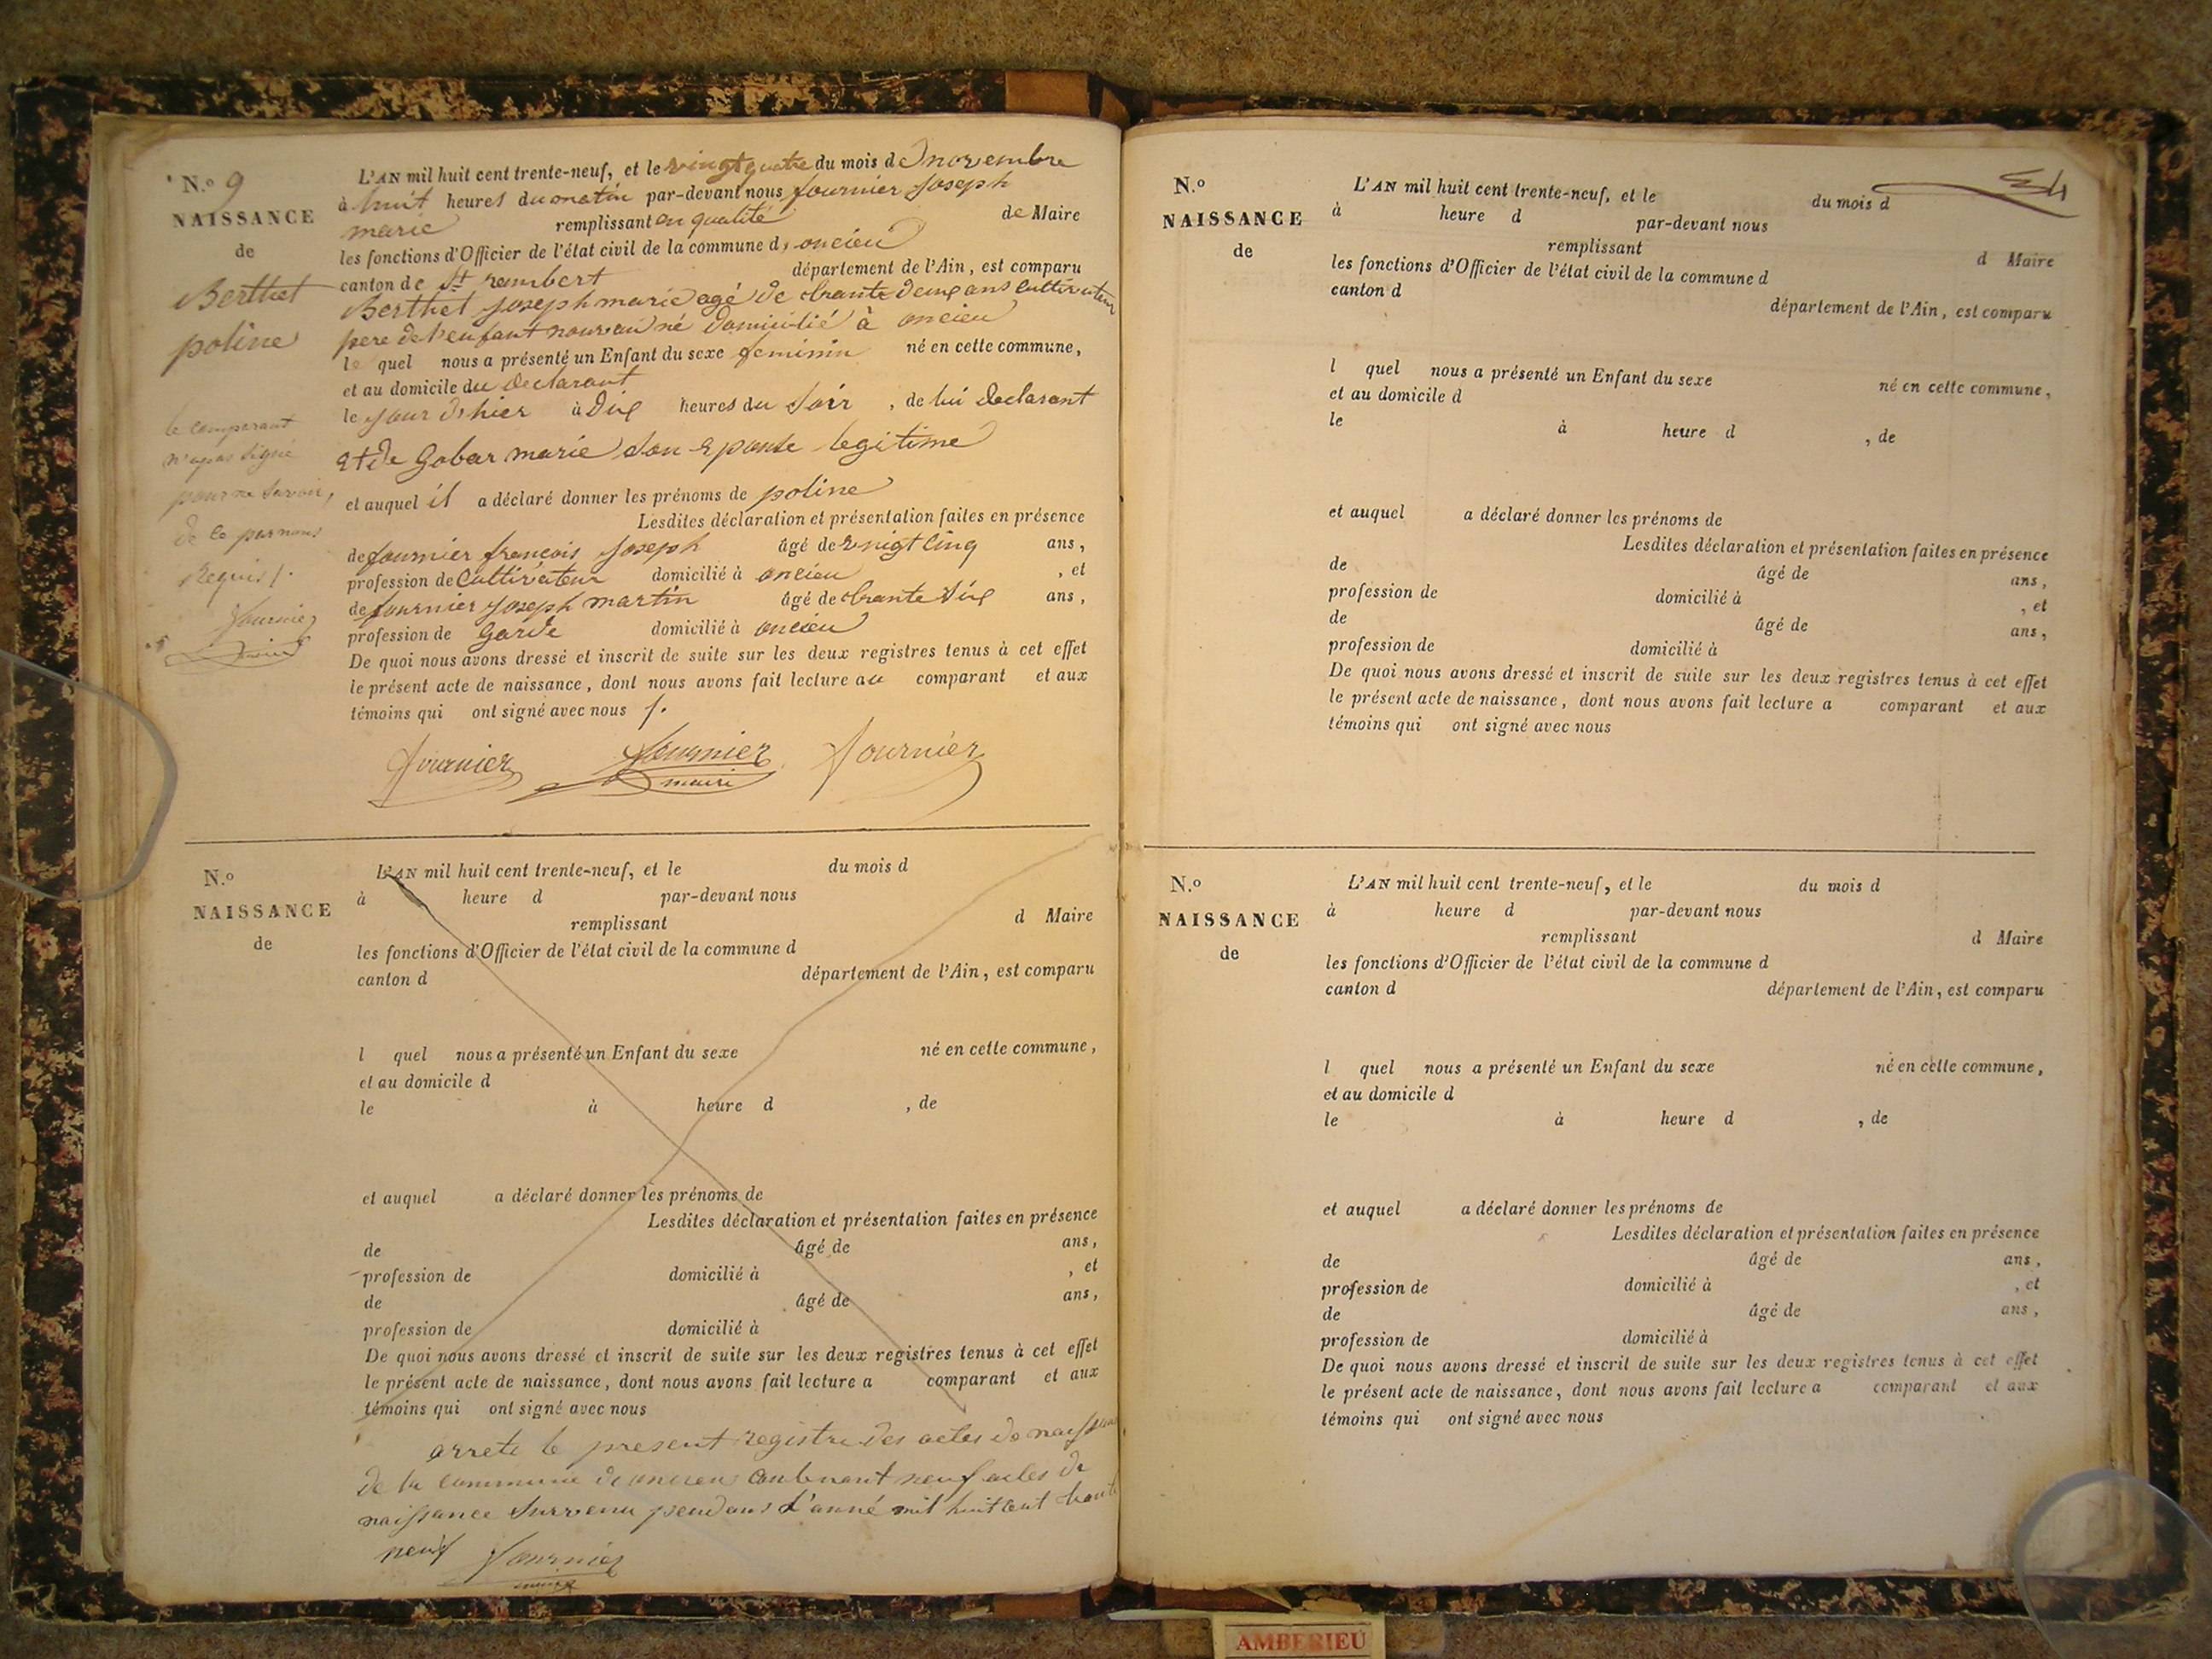 N.º 9
NAISSANCE
de
Berthet
poline
le comparant
n'a pas signé
pour ne savoir,
de ce par nous
Requis /.
Fournier
maire
L'AN mil huit cent trente-neuf, et le vingt quatre du mois de novembre
à huit heures du matin par-devant nous fournier Joseph
marie remplissant en qualité de Maire
les fonctions d'Officier de l'état civil de la commune d, oncieu
canton de St rambert département de l'Ain, est comparu
Berthet Joseph marie agé de trante deux ans Cultivateur
pere de l'enfant nouveau né domicilié à oncieu
le quel nous a présenté un Enfant du sexe feminin né en cette commune,
et au domicile du declarant
le jour d'hier à Dix heures du Soir, de lui declarant
et de Gobar marie son Epouse legitime
et auquel il a déclaré donner les prénoms de poline
Lesdites déclaration et présentation faites en présence
de fournier francois Joseph âgé de vingt cinq ans,
profession de Cultivateur domicilié à oncieu, et
de fournier Joseph martin âgé de trante Six ans,
profession de Garde domicilié à oncieu
De quoi nous avons dressé et inscrit de suite sur les deux registres tenus à cet effet
le présent acte de naissance, dont nous avons fait lecture au comparant et aux
témoins qui ont signé avec nous /.
Fournier Fournier Fournier
maire
N.º
NAISSANCE
de
L'AN mil huit cent trente-neuf, et le du mois d
à heure d par-devant nous
remplissant d Maire
les fonctions d'Officier de l'état civil de la commune d
canton d département de l'Ain, est comparu
l quel nous a présenté un Enfant du sexe né en cette commune,
et au domicile d
le à heure d , de
et auquel a déclaré donner les prénoms de
Lesdites déclaration et présentation faites en présence
de âgé de ans,
profession de domicilié à , et
de âgé de ans,
profession de domicilié à
De quoi nous avons dressé et inscrit de suite sur les deux registres tenus à cet effet
le présent acte de naissance, dont nous avons fait lecture a comparant et aux
témoins qui ont signé avec nous
arrete le present registre des actes de naissance
de la commune de oncieu contenant neuf actes de
naissance Survenu pendant l'anné mil huit cent trante
neuf Fournier
maire
N.º
NAISSANCE
de
L'AN mil huit cent trente-neuf, et le du mois d
à heure d par-devant nous
remplissant d Maire
les fonctions d'Officier de l'état civil de la commune d
canton d département de l'Ain, est comparu
l quel nous a présenté un Enfant du sexe né en cette commune,
et au domicile d
le à heure d , de
et auquel a déclaré donner les prénoms de
Lesdites déclaration et présentation faites en présence
de âgé de ans,
profession de domicilié à , et
de âgé de ans,
profession de domicilié à
De quoi nous avons dressé et inscrit de suite sur les deux registres tenus à cet effet
le présent acte de naissance, dont nous avons fait lecture a comparant et aux
témoins qui ont signé avec nous
N.º
NAISSANCE
de
L'AN mil huit cent trente-neuf, et le du mois d
à heure d par-devant nous
remplissant d Maire
les fonctions d'Officier de l'état civil de la commune d
canton d département de l'Ain, est comparu
l quel nous a présenté un Enfant du sexe né en cette commune,
et au domicile d
le à heure d , de
et auquel a déclaré donner les prénoms de
Lesdites déclaration et présentation faites en présence
de âgé de ans,
profession de domicilié à , et
de âgé de ans,
profession de domicilié à
De quoi nous avons dressé et inscrit de suite sur les deux registres tenus à cet effet
le présent acte de naissance, dont nous avons fait lecture a comparant et aux
témoins qui ont signé avec nous
AMBERIEU